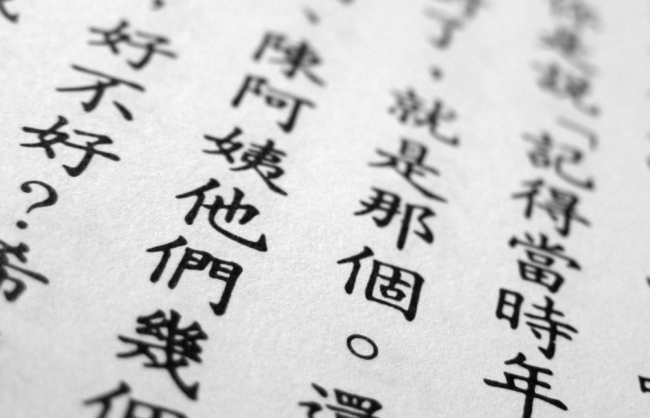 你是說「記得當時年
得了，就是那個。還
、陳阿姨他們幾個
，好不好？